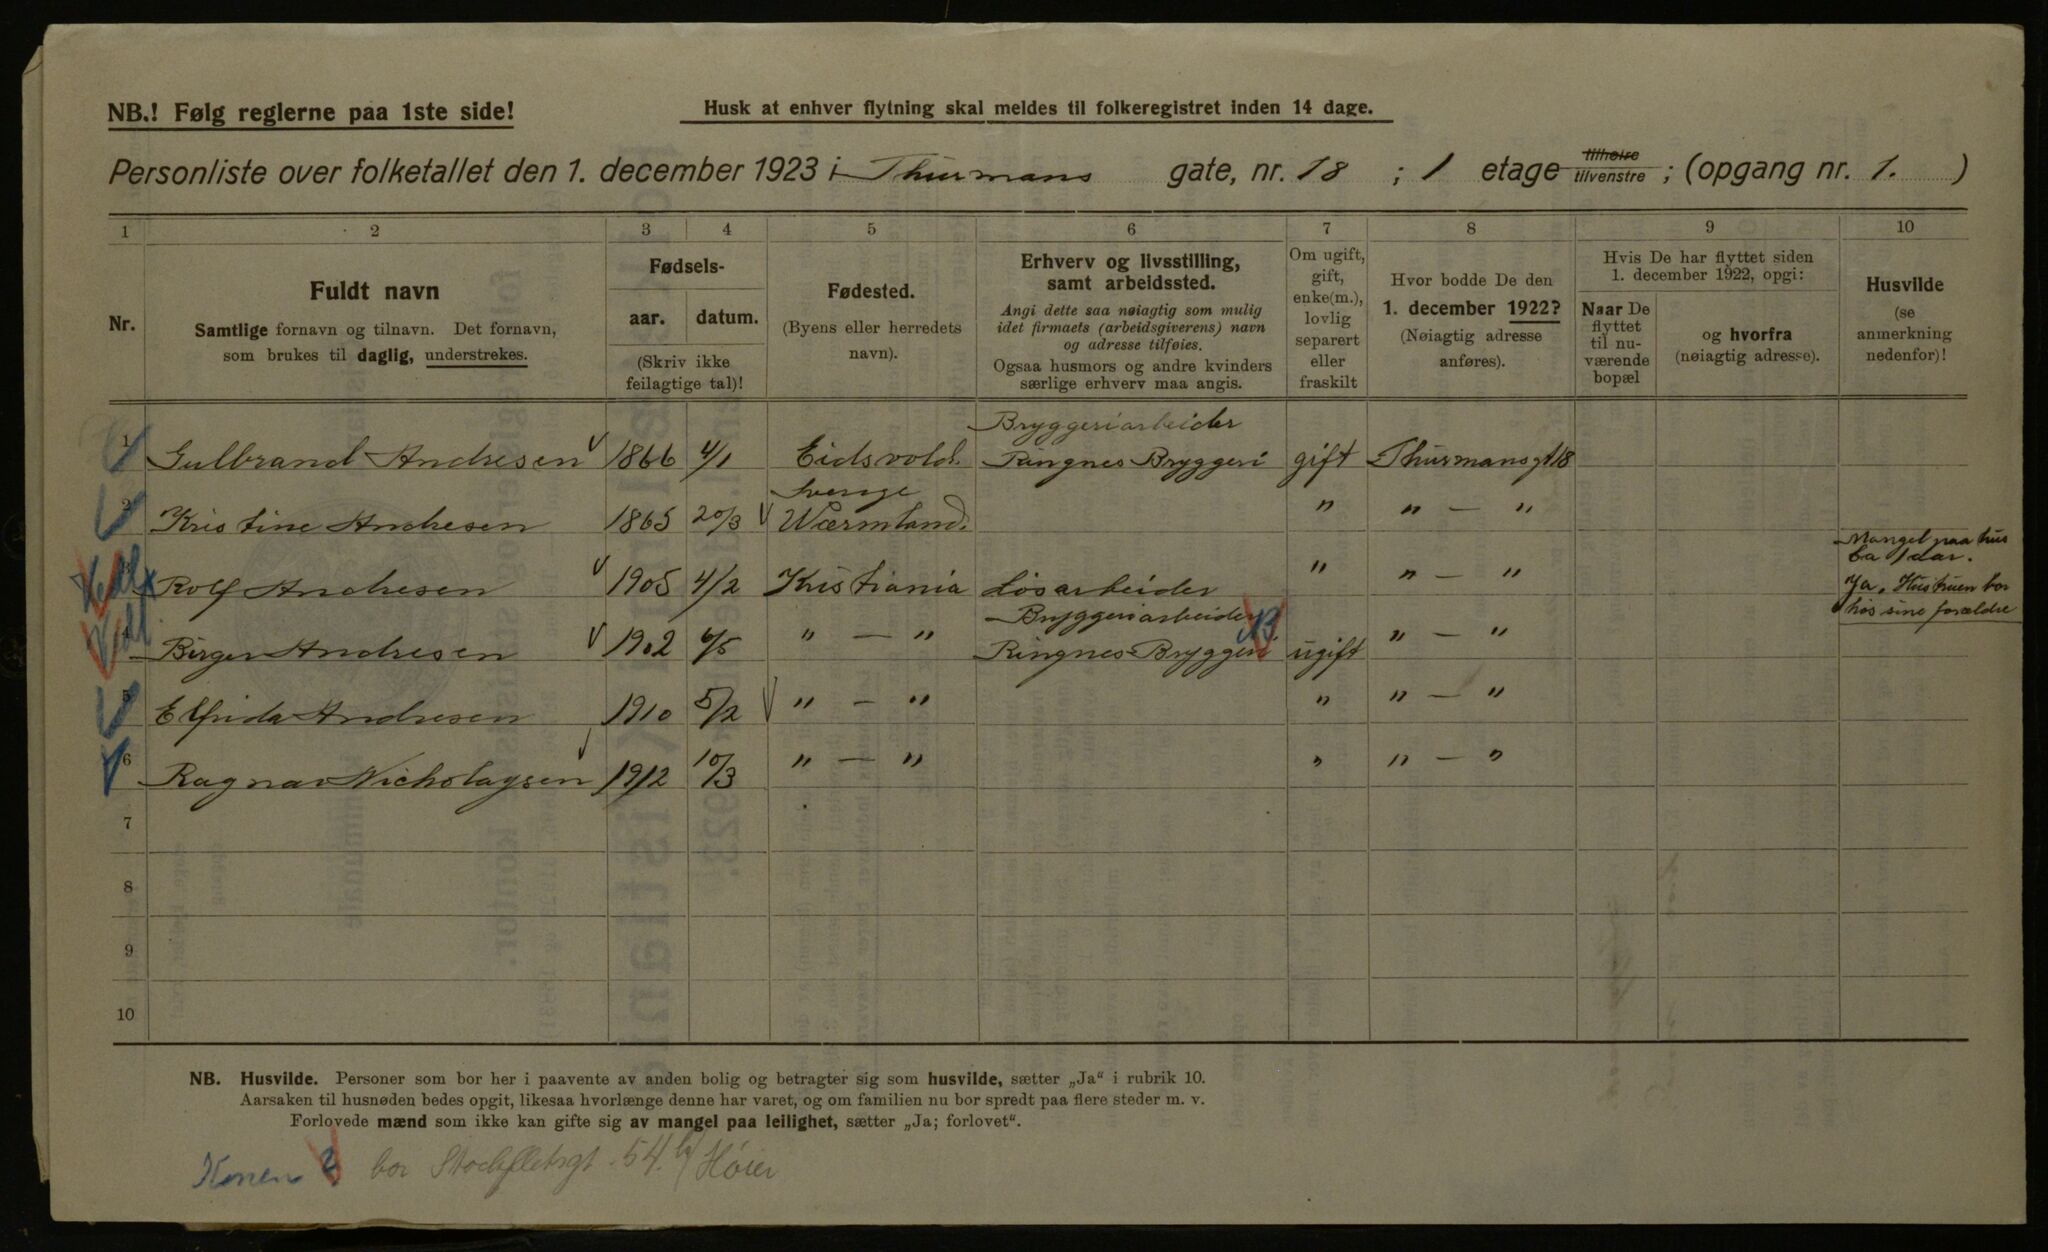 NB.! Følg reglerne paa 1ste side!
Husk at enhver flytning skal meldes til folkeregistret inden 14 dage.
Personliste over folketallet den 1. december 1923 i Thurmans gate, nr. 18 ; 1 etage tilhøire tilvenstre ; (opgang nr. 1. )
1 2 3 4 5 6 7 8 9 10
Nr.
Fuldt navn
Samtlige fornavn og tilnavn. Det fornavn,
som brukes til daglig, understrekes.
Fødsels-
aar. datum.
(Skriv ikke
feilagtige tal)!
Fødested.
(Byens eller herredets
navn).
Erhverv og livsstilling,
samt arbeidssted.
Angi dette saa nøiagtig som mulig
idet firmaets (arbeidsgiverens) navn
og adresse tilføies.
Ogsaa husmors og andre kvinders
særlige erhverv maa angis.
Om ugift,
gift,
enke(m.),
lovlig
separert
eller
fraskilt
Hvor bodde De den
1. december 1922?
(Nøiagtig adresse
anføres).
Hvis De har flyttet siden
1. december 1922, opgi:
Naar De
flyttet
til nu-
værende
bopæl
og hvorfra
(nøiagtig adresse).
Husvilde
(se
anmerkning
nedenfor)!
Bryggeriarbeider
1 Gulbrand Andresen 1866 4/1 Eidsvold. Ringnes Bryggeri gift Thurmansgt 18
Sverige
2 Kristine Andresen 1865 20/3 Wærmland. " " — "
Mangel paa hus
ca 1 aar.
3 Rolf Andresen 1905 4/2 Kristiania Løsarbeider " " — " Ja. Hustruen bor
hos sine forældre
Bryggeriarbeider
4 Birger Andresen 1902 6/5 " — " Ringnes Bryggeri ugift " — "
5 Elfrida Andresen 1910 5/2 " — " " " — "
6 Ragnar Nicholaysen 1912 10/3 " — " " " — "
7
8
9
10
NB. Husvilde. Personer som bor her i paavente av anden bolig og betragter sig som husvilde, sætter „Ja“ i rubrik 10.
Aarsaken til husnøden bedes opgit, likesaa hvorlænge denne har varet, og om familien nu bor spredt paa flere steder m. v.
Forlovede mænd som ikke kan gifte sig av mangel paa leilighet, sætter „Ja; forlovet“.
Konen 3 bor Stockfletsgt. 54 b/ Høier